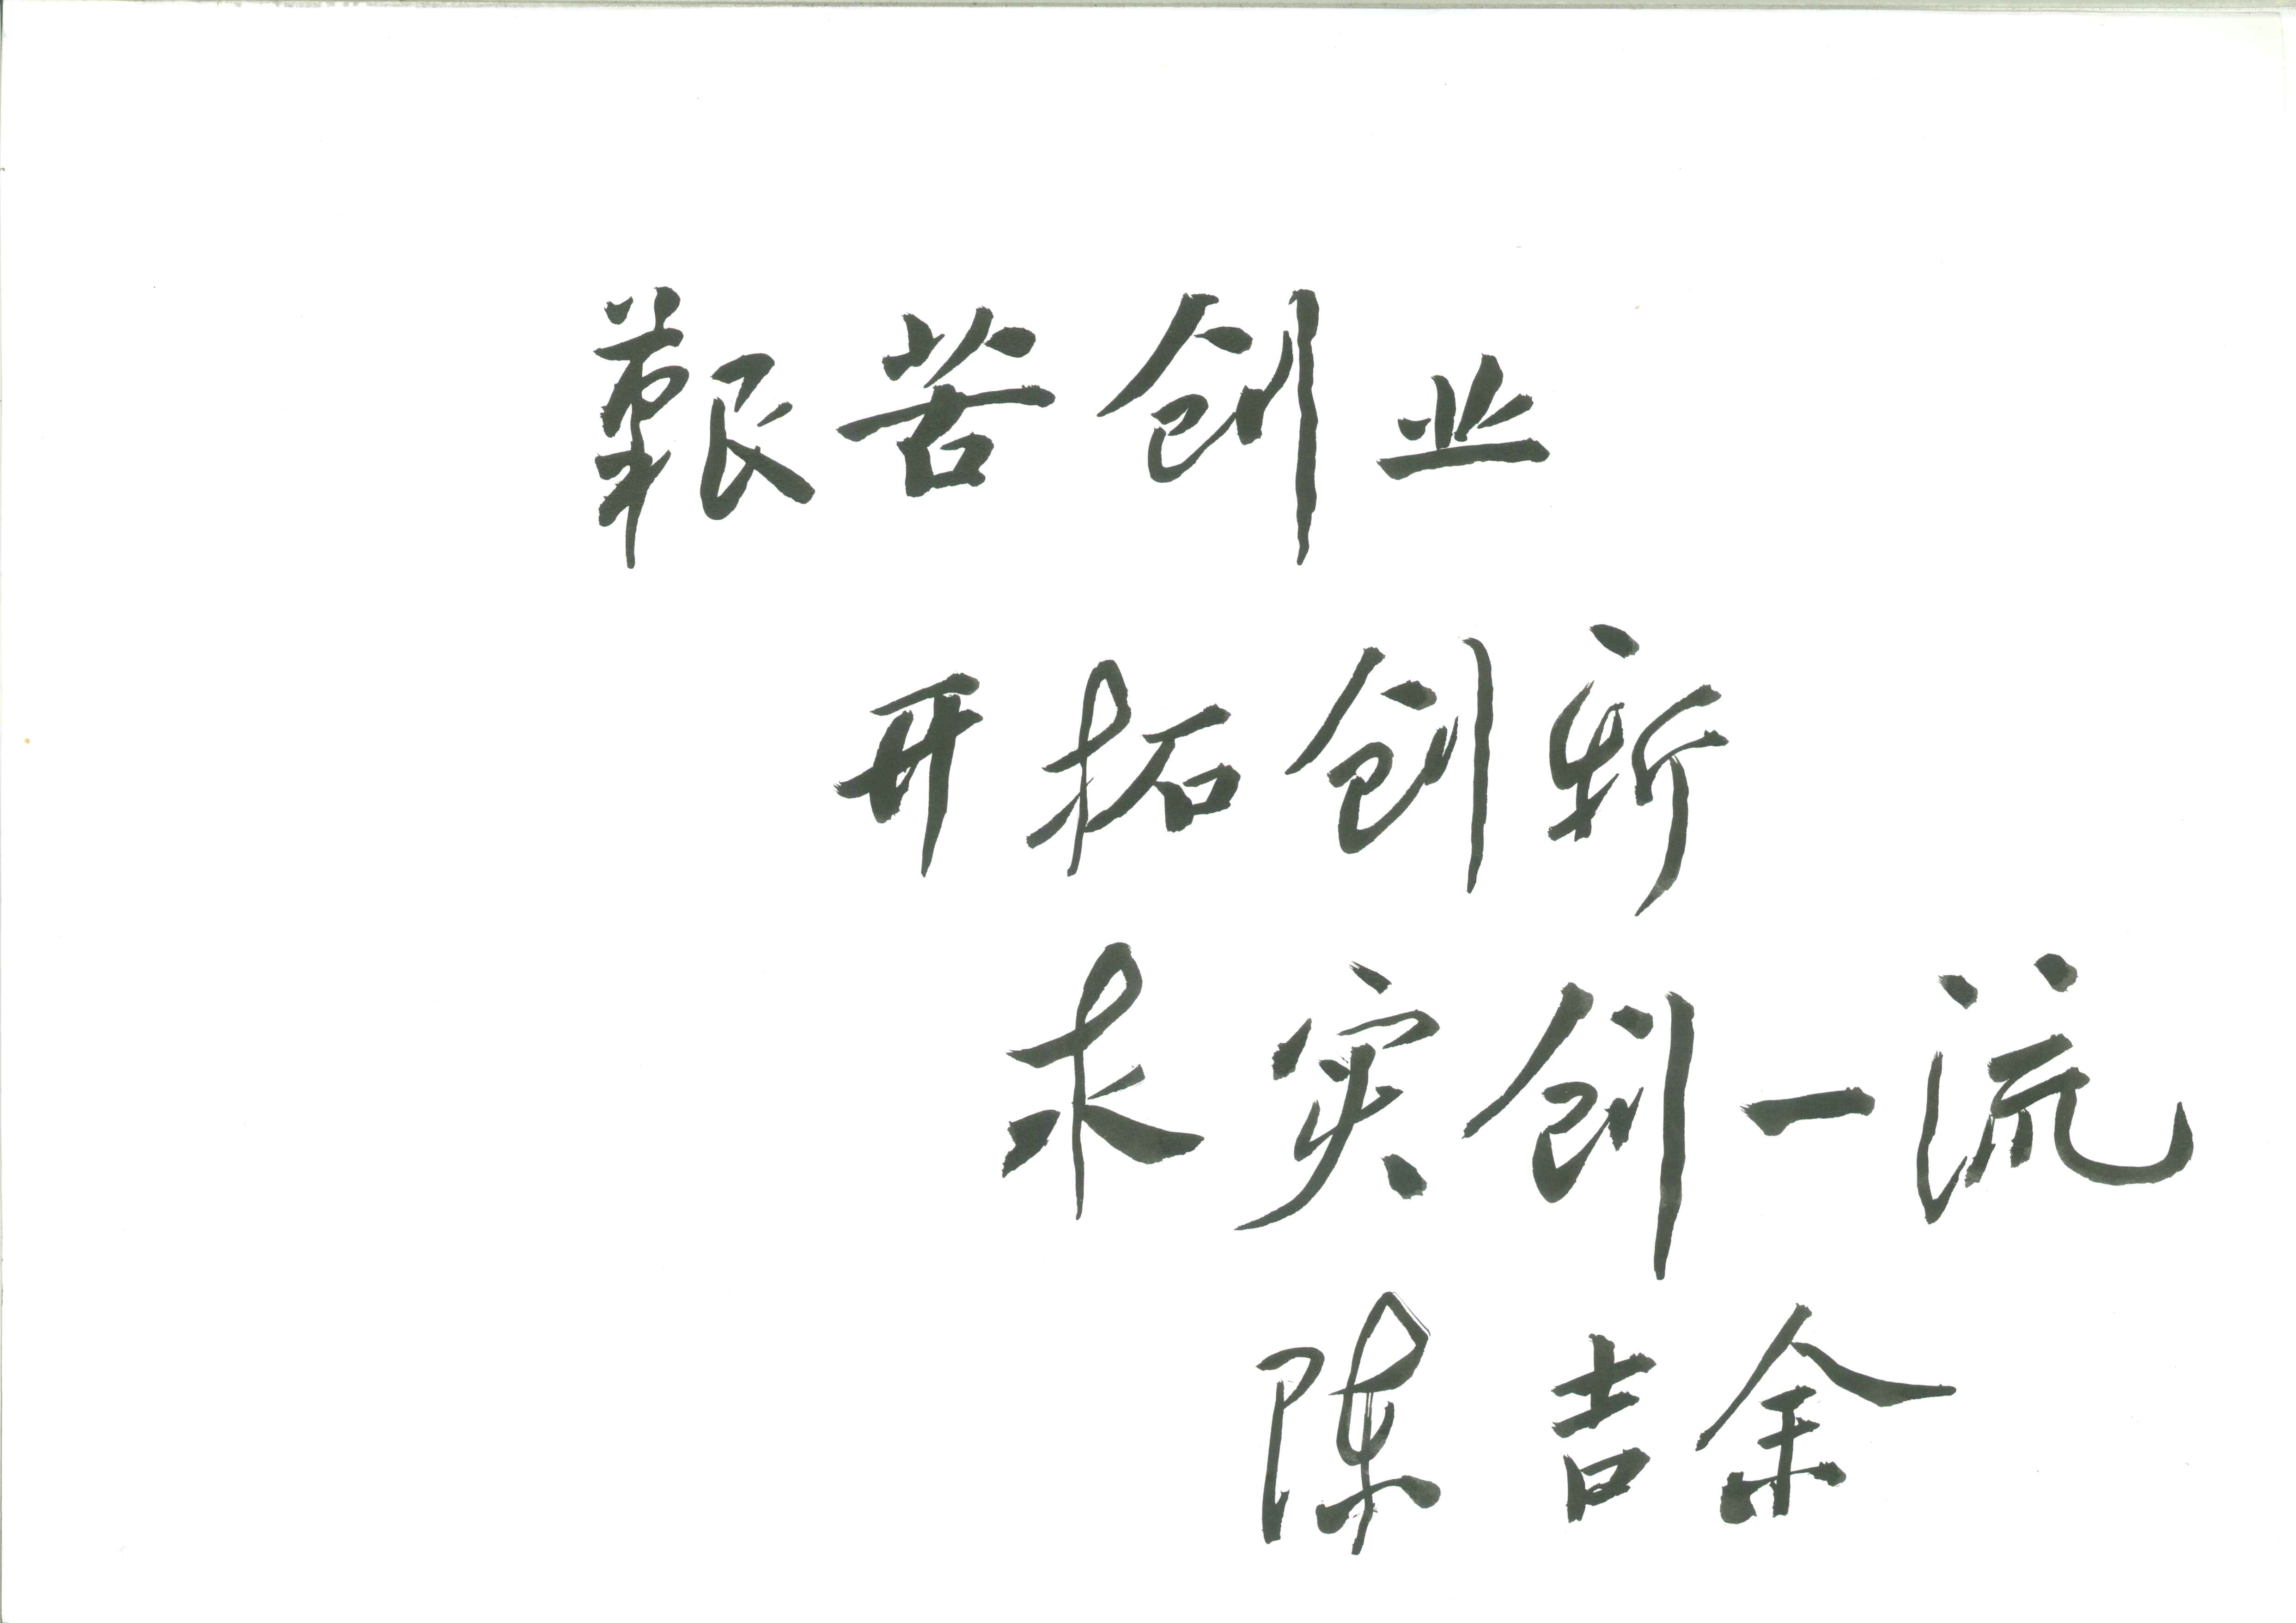 艱苦创业
开拓创新
求实创一流
陳吉余